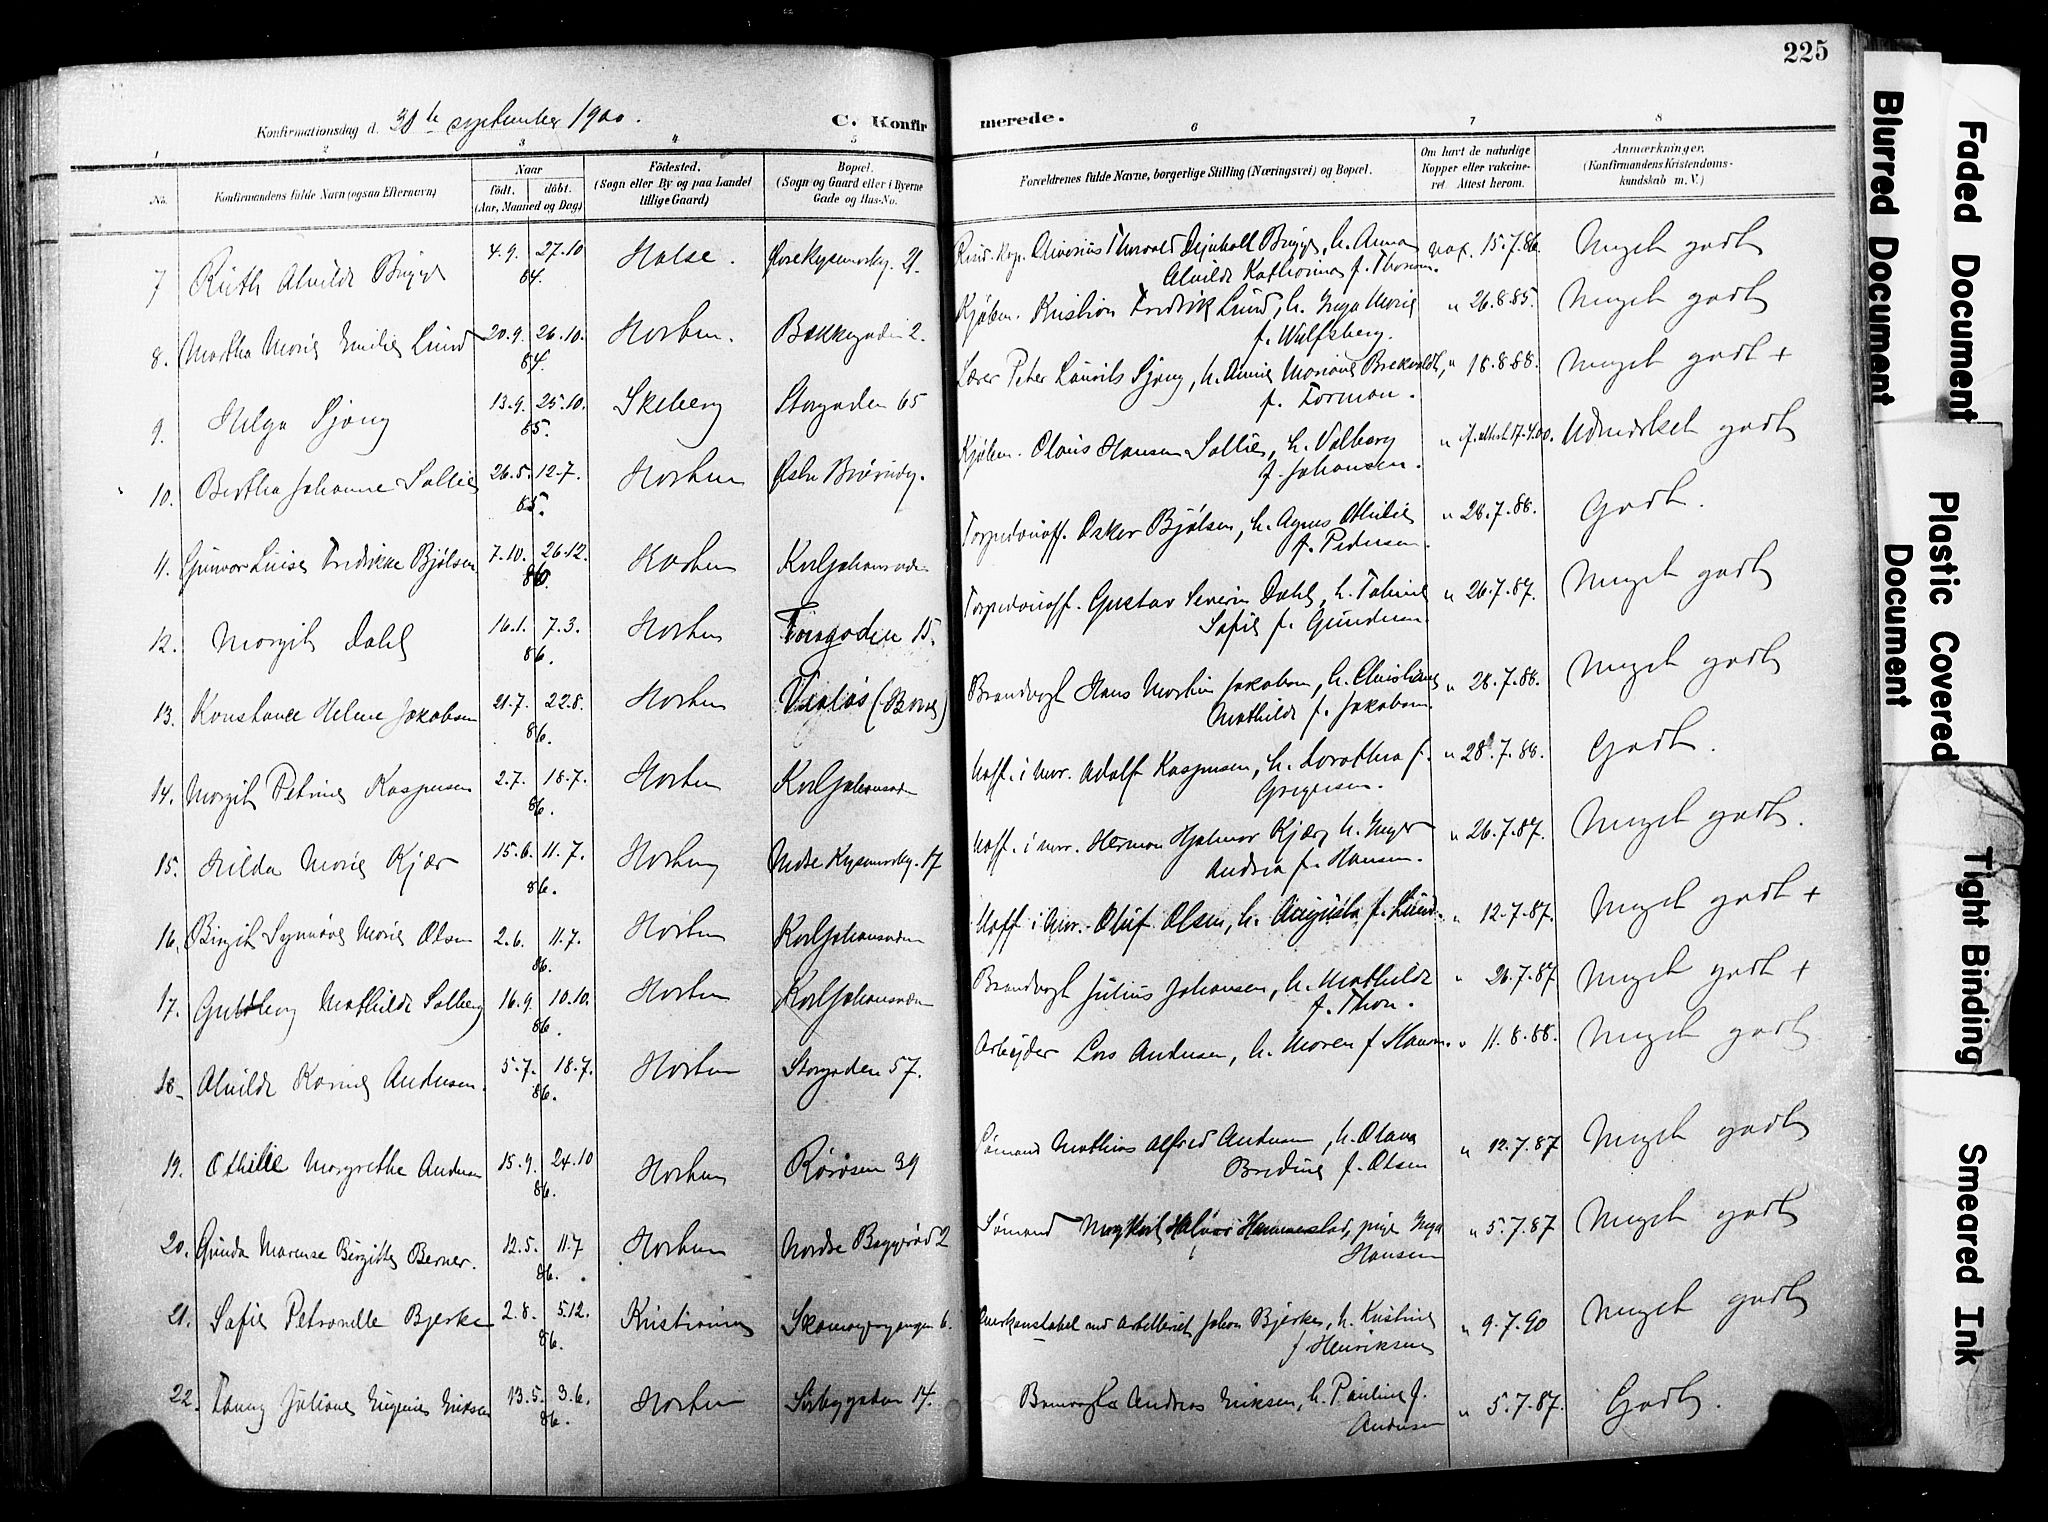 225
Konfirmationsdag d. 30te september 1900. C. Konfirmerede.
1 2 3 4 5 6 7 8
No. Konfirmandens fulde Navn (ogsaa Efternavn) Naar født. døbt. (Aar, Maaned og Dag) Födested. (Sogn eller By og paa Landet tillige Gaard) Bopæl. (Sogn og Gaard eller i Byerne Gade og Hus-No. Forældrenes fulde Navne, borgerlige Stilling (Næringsvei) og Bopæl. Om havt de naturlige Kopper eller vakcineret Attest herom. Anmærkninger. (Konfirmandens Kristendomskundskab m. V.)
7 Ruth Alvilde Brygge 4.9. 27.10 84. Halse. 21. Thorvald Brygge, h. Anna vax. 15.7.86. Meget godt
Alvilde Kathrine f.
8. Martha Marie Emilie Lund 20.9. 26.10. 84. Horten. Bakkegaden 2. Kjøbm. Kristian Fredrik Lund, h. Inga Marie " 26.8.85. Meget godt
f. Wulfsberg.
9. Helga Sjong 13.9. 25.10. 85. Skeberg Storgaden 65 Lærer Peter Laurits Sjong, h. Annie Mariane " 18.8.88. Meget godt +
f. Forman.
10. Bertha Johanne Sollie 26.5. 12.7. 85. Horten Østre Kjøbm. Olaus Hansen Sollie, h. Valborg " if. attest 17.4.00. Udmærket godt
f. Johansen.
11. Gunvor Luise Fredrikke Bjølsen 7.10. 26.12. 86. Horten Karljohansværn Torpedouoff. Oskar Bjølsen, h. Agnes Othilie " 28.7.88. Godt.
f. Pedersen.
12. Margit Dahl 16.1. 7.3. 86. Horten 15. Torpedouoff. Gustav Severin Dahl, h. Tobine " 26.7.87. Meget godt
Sofie f. Gundersen
13. Konstance Helene Jakobsen 21.7. 22.8. 86. Horten (Borre) Brandvagt Hans Martin Jakobsen, h. Christiane " 28.7.88. Meget godt
Mathilde f. Jakobsen.
14. Margit Petrine Kaspersen 2.7. 18.7. 86. Horten Karljohansværn Uoff. i mar. Adolf Kaspersen, h. Dorothea f. " 28.7.88. Godt.
Gregersen.
15. Hilda Marie Kjær 15.6. 11.7. 86. Horten 17 Uoff. i mar. Herman Hjalmar Kjær, h. Inger " 26.7.87. Meget godt.
Andrea f. Hansen.
16. Birgit Synnøve Marie Olsen 2.6. 11.7. 86. Horten Karljohansværn Uoff. i mar. Oluf Olsen, h. Augusta f. Lund. " 12.7.87. Meget godt +
17. Gudborg Mathilde Solberg 16.9. 10.10. 86. Horten Karljohansværn Brandvagt Julius Johansen, h. Mathilde " 26.7.87 Meget godt +
f. Thon.
18. Alvilde Karine Andersen. 5.7. 18.7. 86. Horten Storgaden 57. Arbejder Lars Andersen, h. Maren f. Hansen. " 11.8.88. Meget godt
19. Othilie Margrethe Andersen 15.9. 24.10 86. Horten Rørosen 39 Sømand Mathias Alfred Andersen, h. Olava " 12.7.87 Meget godt
Bredine f. Olsen
20. Gunda Marense Birgitte Berner. 12.5. 11.7 86. Horten Nordre Baggerød 2 Sømand Halvor Hammerstad, pige Inga " 5.7.87 Meget godt
Hansen
21. Sofie Petronelle Bjerke 2.8. 5.12. 86. Kristiania 6. ved Artilleriet Johan Bjerke, h. Kristine " 9.7.90 Meget godt
f. Henriksen
22. Fanny Juliane Eugenie Eriksen 13.5. 3.6. 86. Horten 14. Andreas Eriksen, h. Pauline f. " 5.7.87. Godt.
Andersen
Faded Document
Blurred Document
Plastic Covered Document
Tight Binding
Smeared Ink